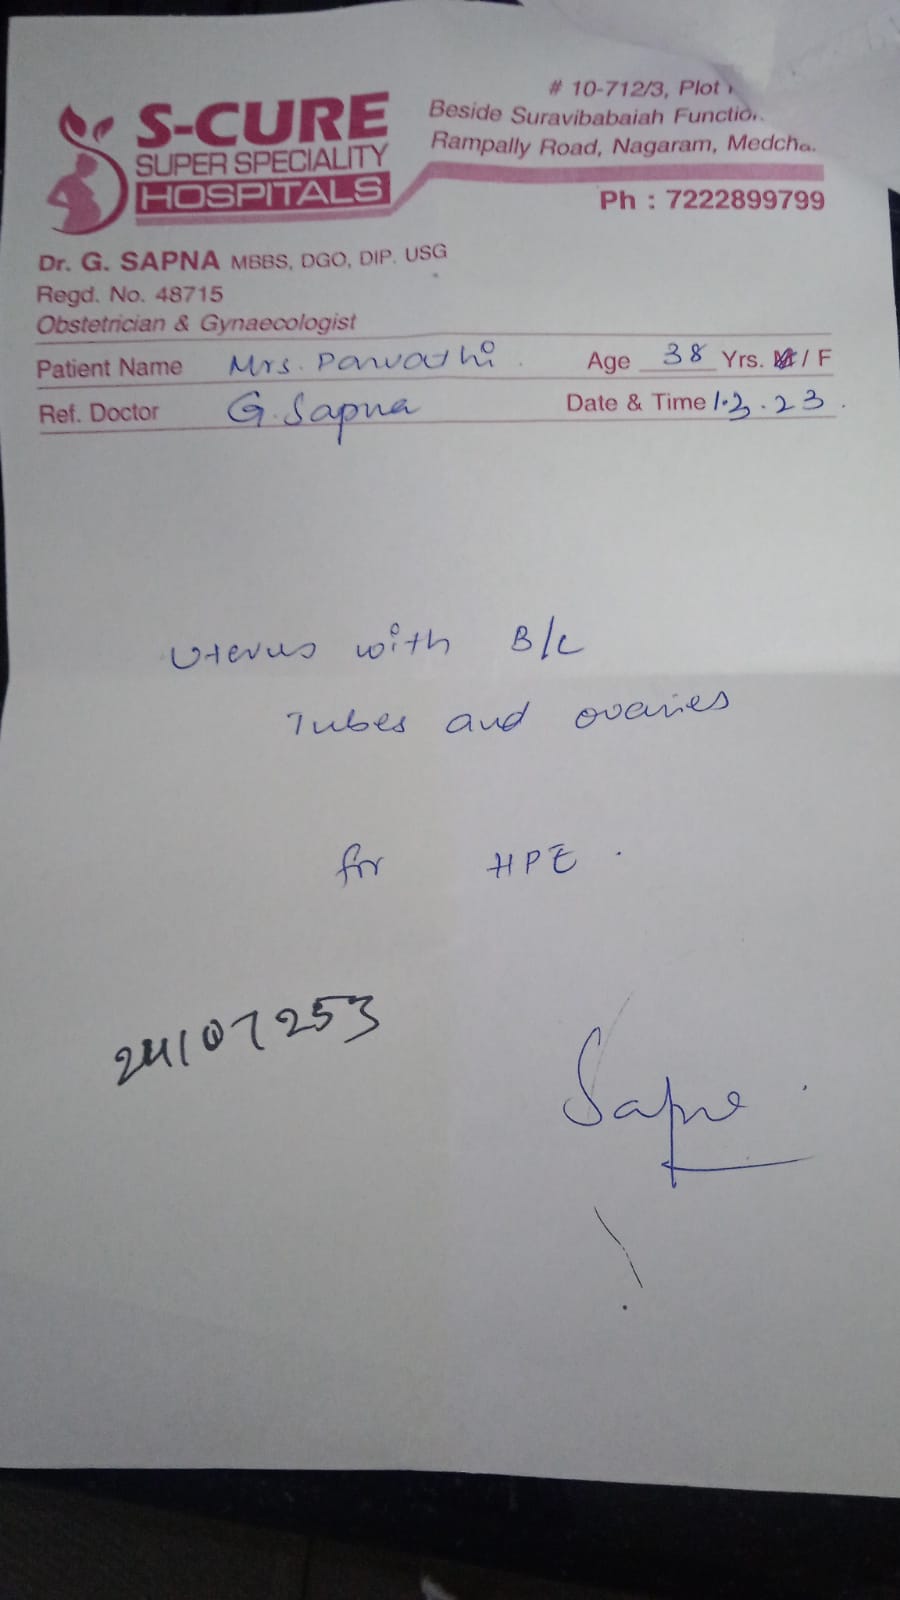 S-CURE
SUPER SPECIALITY
HOSPITALS
# 10-712/3, Plot
Beside Suravibabaiah Functio
Rampally Road, Nagaram, Medcha
Ph : 7222899799
Dr. G. SAPNA MBBS, DGO, DIP. USG
Regd. No. 48715
Obstetrician & Gynaecologist
Patient Name Mrs. Parvathi . Age 38 Yrs. M / F
Ref. Doctor G. Sapna Date & Time 1.3.23.
Uterus with B/L
Tubes and ovaries
for HPE.
24107253
Sapna